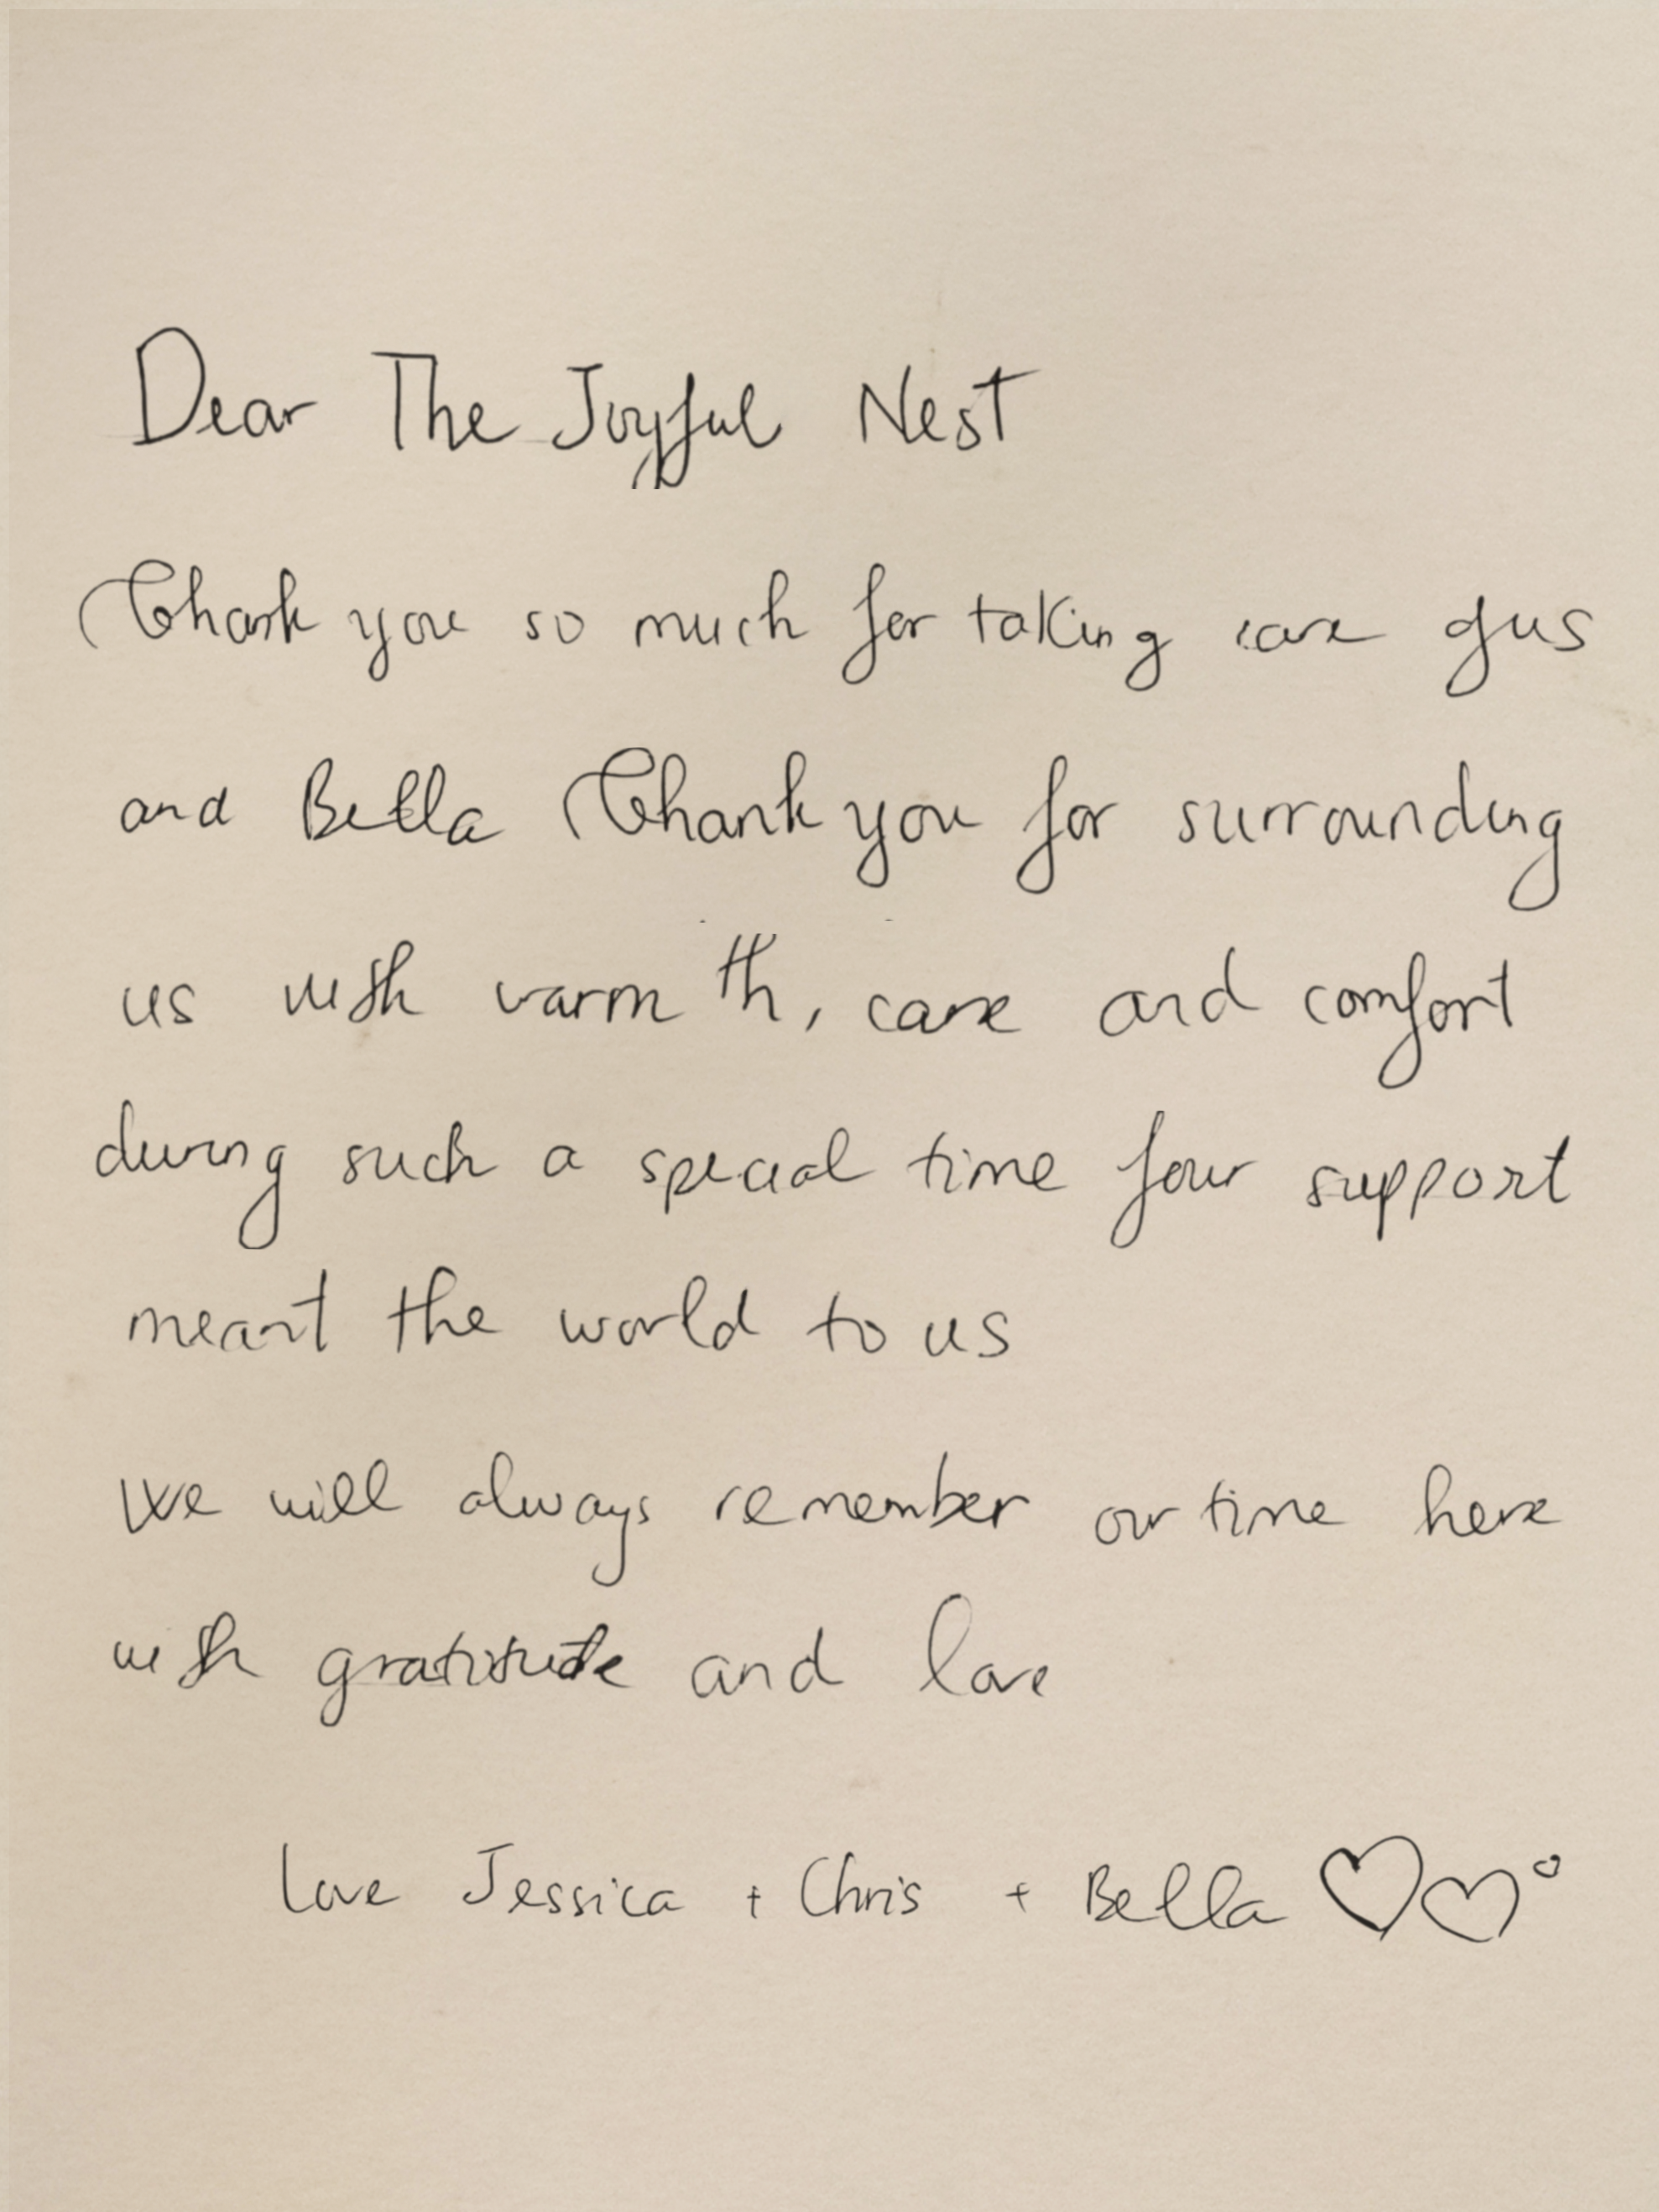 Dear The Joyful Nest
Thank you so much for taking care of us
and Bella Thank you for surrounding
us with warmth, care and comfort
during such a special time your support
meant the world to us
We will always remember our time here
with gratitude and love
Love Jessica + Chris + Bella